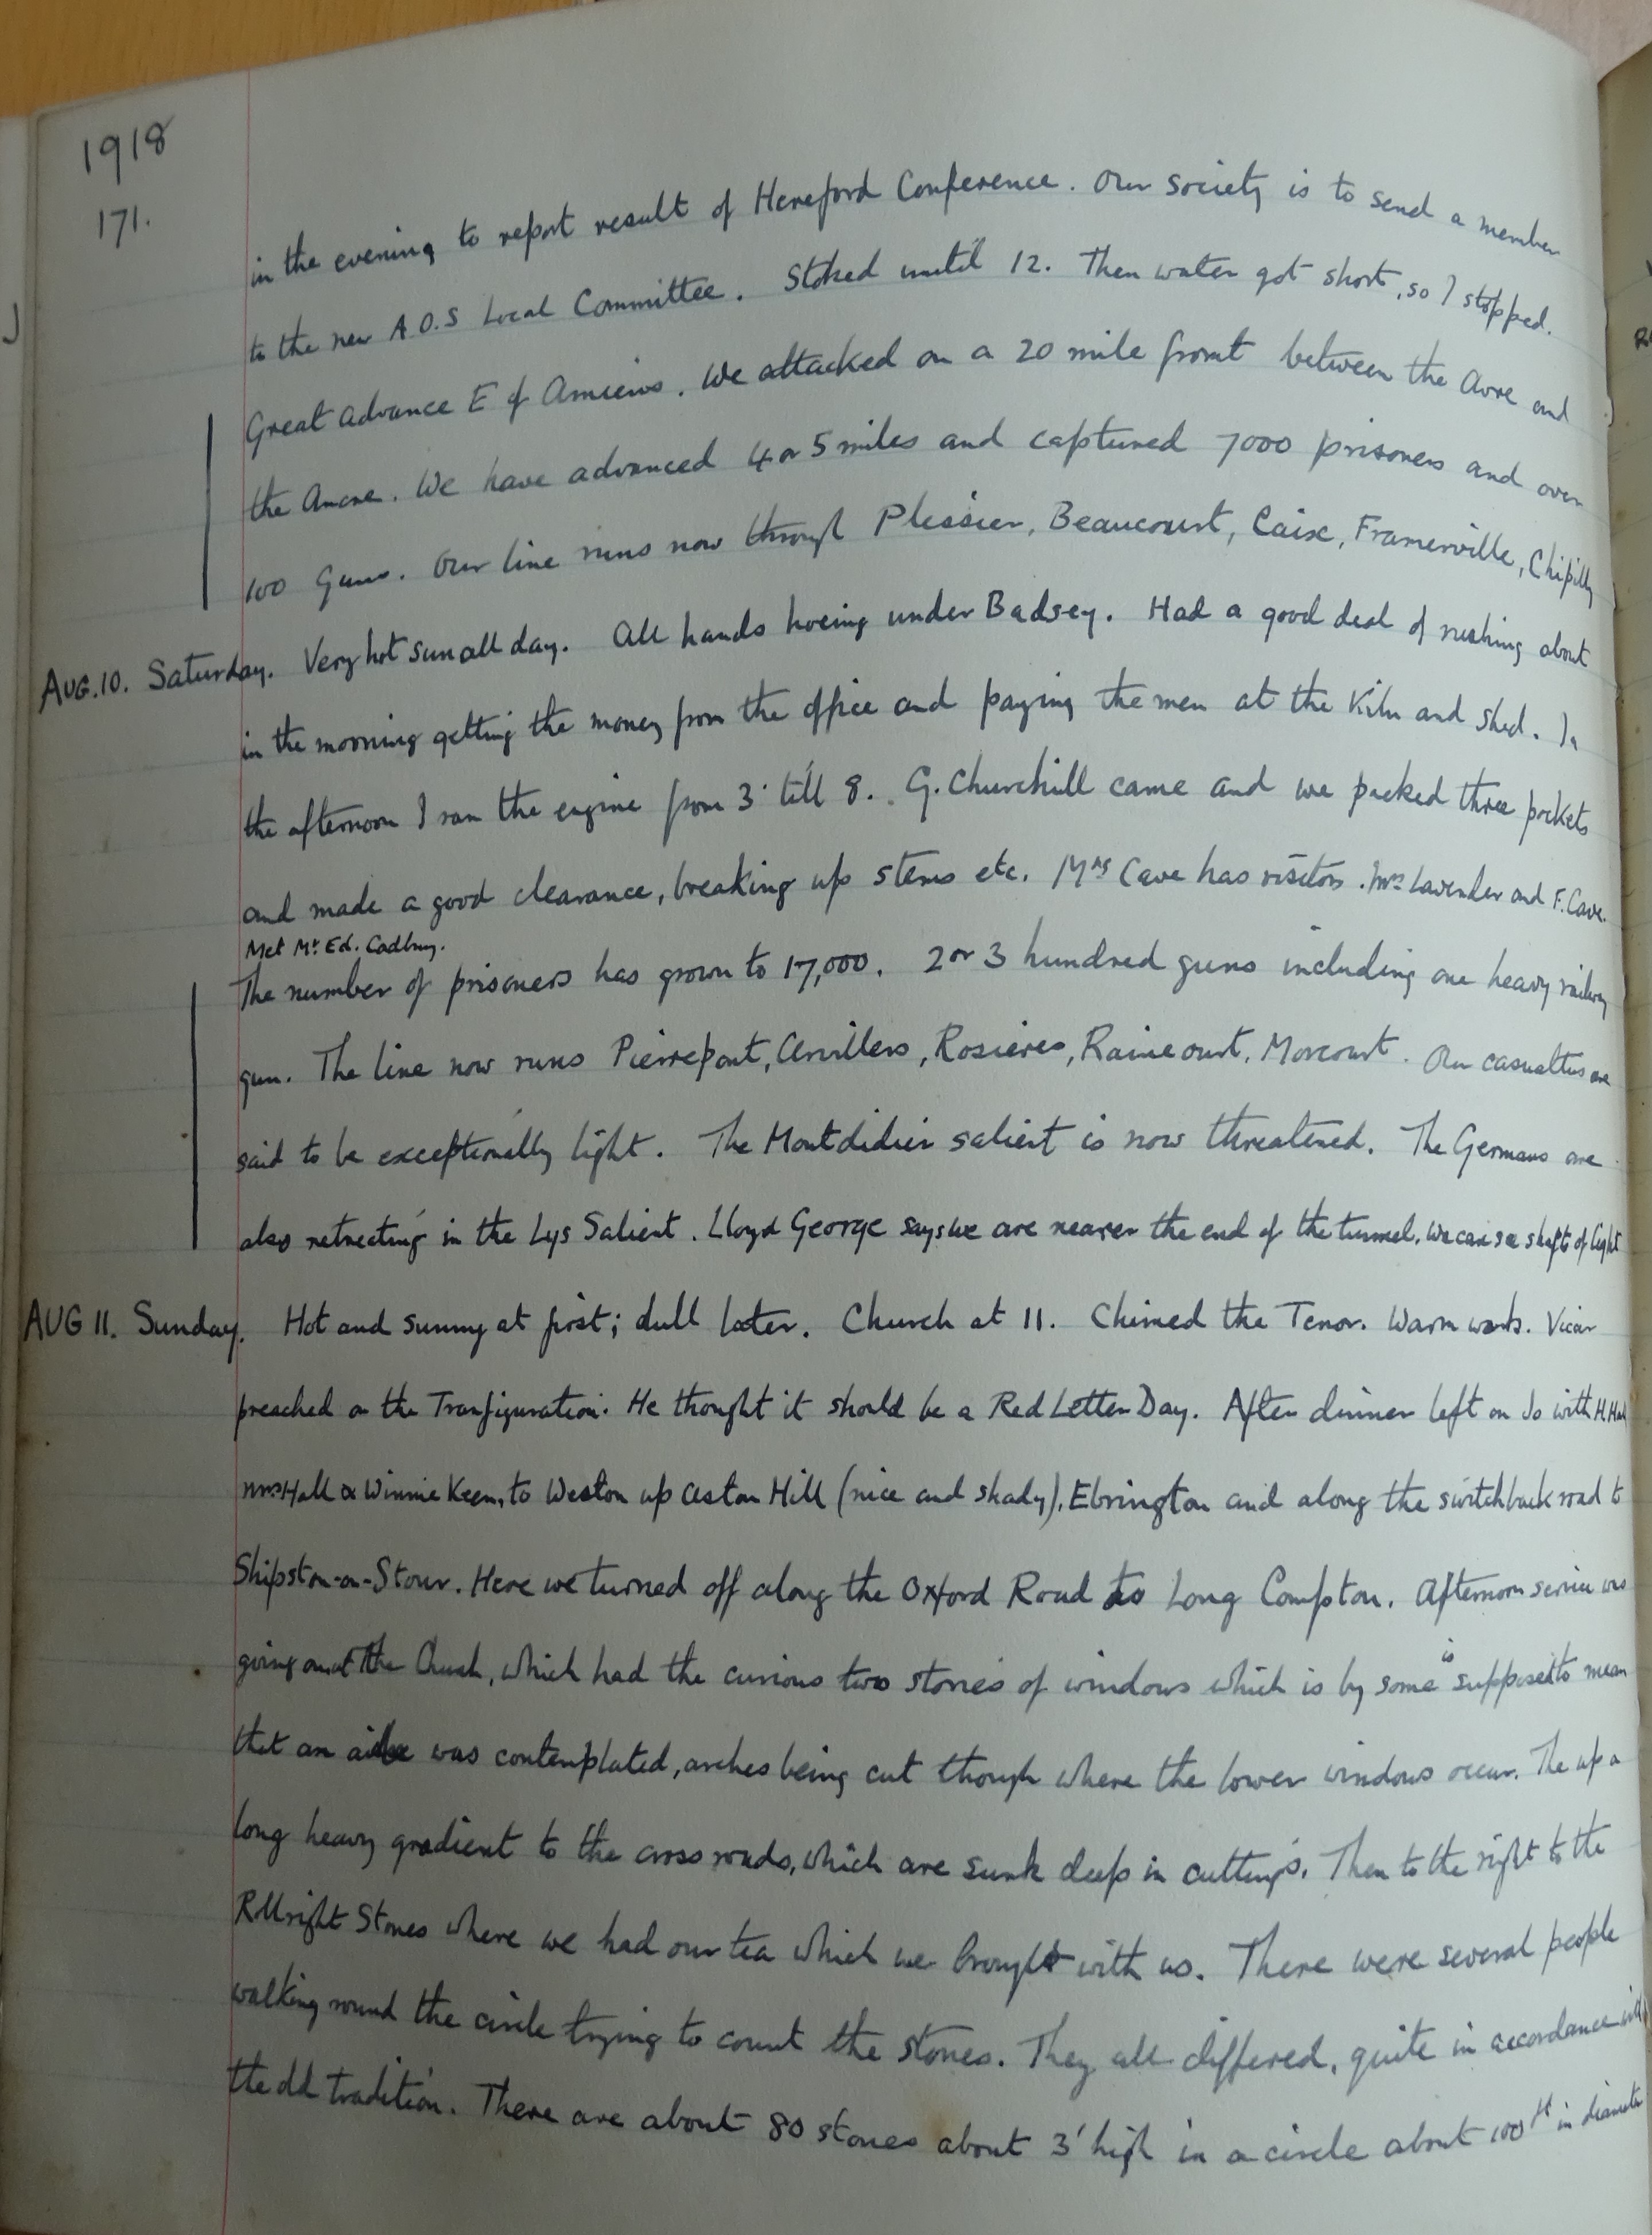 1918
171.
in the evening to report result of Hereford Conference. Our society is to send a member
to the new A.O.S Local Committee. Stoked until 12. Then water got short, so I stopped.
Great advance E of Amiens. We attacked on a 20 mile front between the Avre and
the Ancre. We have advanced 4 or 5 miles and captured 7000 prisoners and over
100 Guns. Our line runs now through Plessier, Beaucourt, Caix, Framerville, Chipilly
AUG. 10. Saturday. Very hot sun all day. All hands hoeing under Badsey. Had a good deal of rushing about
in the morning getting the money from the office and paying the men at the Kiln and shed. In
the afternoon I ran the engine from 3 till 8. G. Churchill came and we packed three pockets
and made a good clearance, breaking up stems etc. Mrs Cave has visitors. Mrs Lavender and F. Cave.
Met Mr Ed. Cadbury.
The number of prisoners has grown to 17,000. 2 or 3 hundred guns including one heavy railway
gun. The line now runs Pierrepont, Arvillers, Rosieres, Rainecourt, Morcourt. Our casualties are
said to be exceptionally light. The Montdidier salient is now threatened. The Germans are
also retreating in the Lys Salient. Lloyd George says we are nearer the end of the tunnel. We can see shafts of light
AUG 11. Sunday. Hot and sunny at first; dull later. Church at 11. Chimed the Tenor. Warm work. Vicar
preached on the Tranfiguration. He thought it should be a Red Letter Day. After dinner left on Jo with H. Hall
Mrs Hall & Winnie Keen, to Weston up Aston Hill (nice and shady), Ebrington and along the switchback road to
Shipston-on-Stour. Here we turned off along the Oxford Road to Long Compton. Afternoon service was
going on at the Church, which had the curious two stories of windows which is by some is supposed to mean
that an aisle was contemplated, arches being cut though where the lower windows occur. The up a
long heavy gradient to the cross roads, which are sunk deep in cuttings. Then to the right to the
Rollright Stones where we had our tea which we brought with us. There were several people
walking round the circle trying to count the stones. They all differed, quite in accordance with
the old tradition. There are about 80 stones about 3' high in a circle about 100ft in diameter